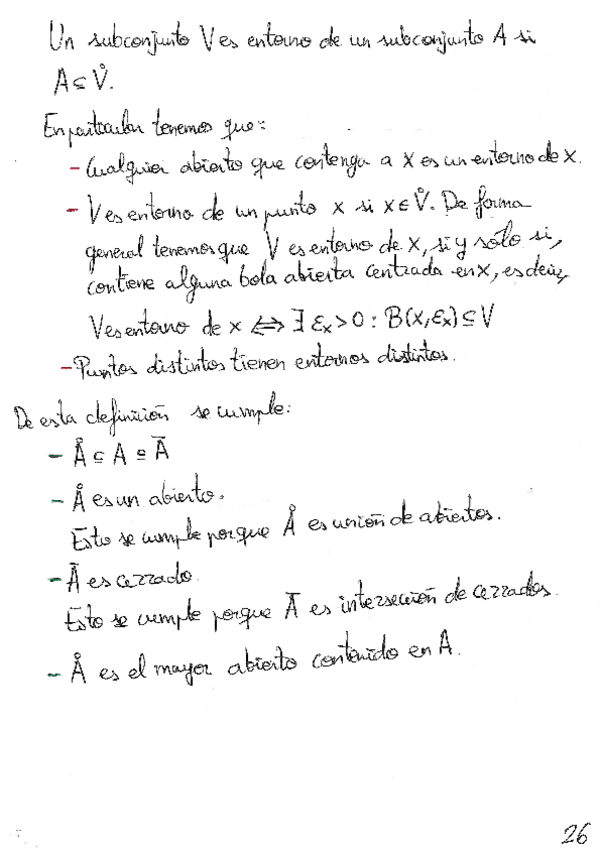 Un subconjunto V es entorno de un subconjunto A si
A ⊆ V̊.
En particular tenemos que:
- Cualquier abierto que contenga a x es un entorno de x.
- V es entorno de un punto x si x ∈ V̊. De forma
general tenemos que V es entorno de x, si y sólo si,
contiene alguna bola abierta centrada en x, es decir,
V es entorno de x ⟺ ∃ εₓ > 0 : B(x, εₓ) ⊆ V
- Puntos distintos tienen entornos distintos.
De esta definición se cumple:
- Å ⊆ A ⊆ Ā
- Å es un abierto.
Esto se cumple porque Å es unión de abiertos.
- Ā es cerrado.
Esto se cumple porque Ā es intersección de cerrados.
- Å es el mayor abierto contenido en A.
26